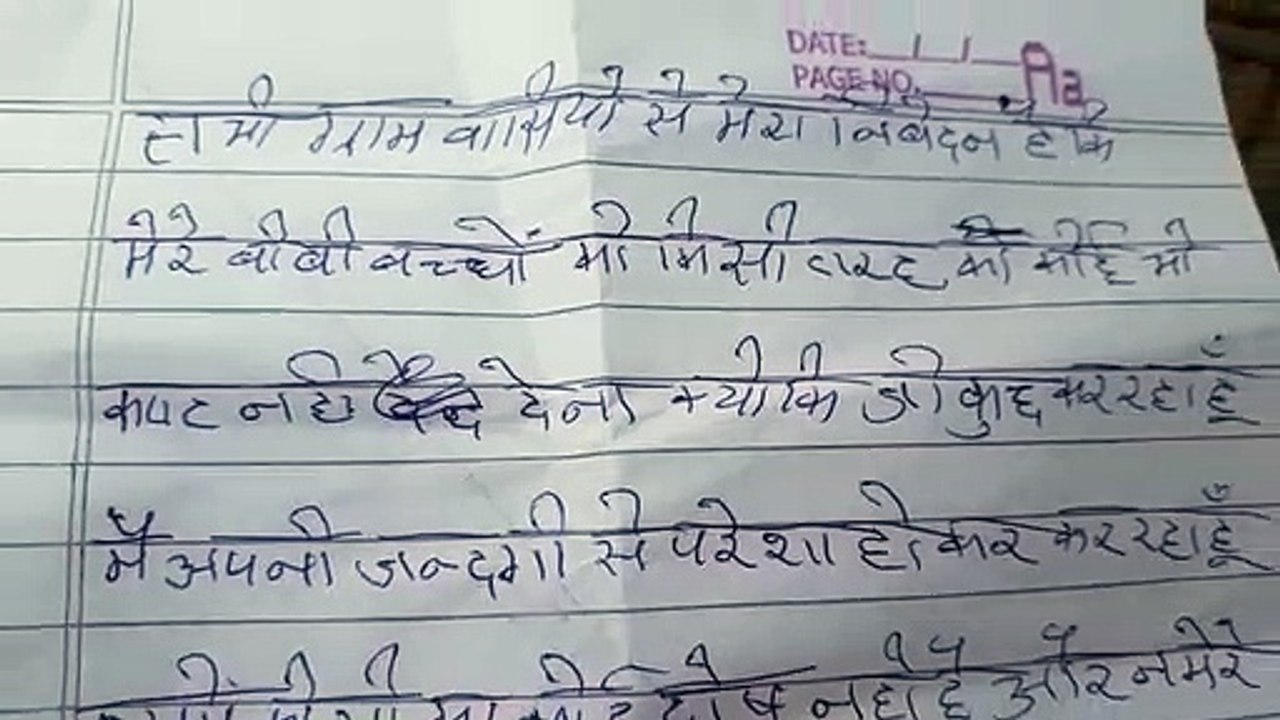 DATE: / /
PAGE NO. Aa
ग्राम वासियो से मेरा निवेदन है कि
मेरे बीबी बच्चों को किसी तरह की कोई भी
कष्ट नही देना क्योकि जो कुछ कर रहा हूँ
मैं अपनी जिन्दगी से परेशा होकर कर रहा हूँ
कोई दोष नही है और न मेरे